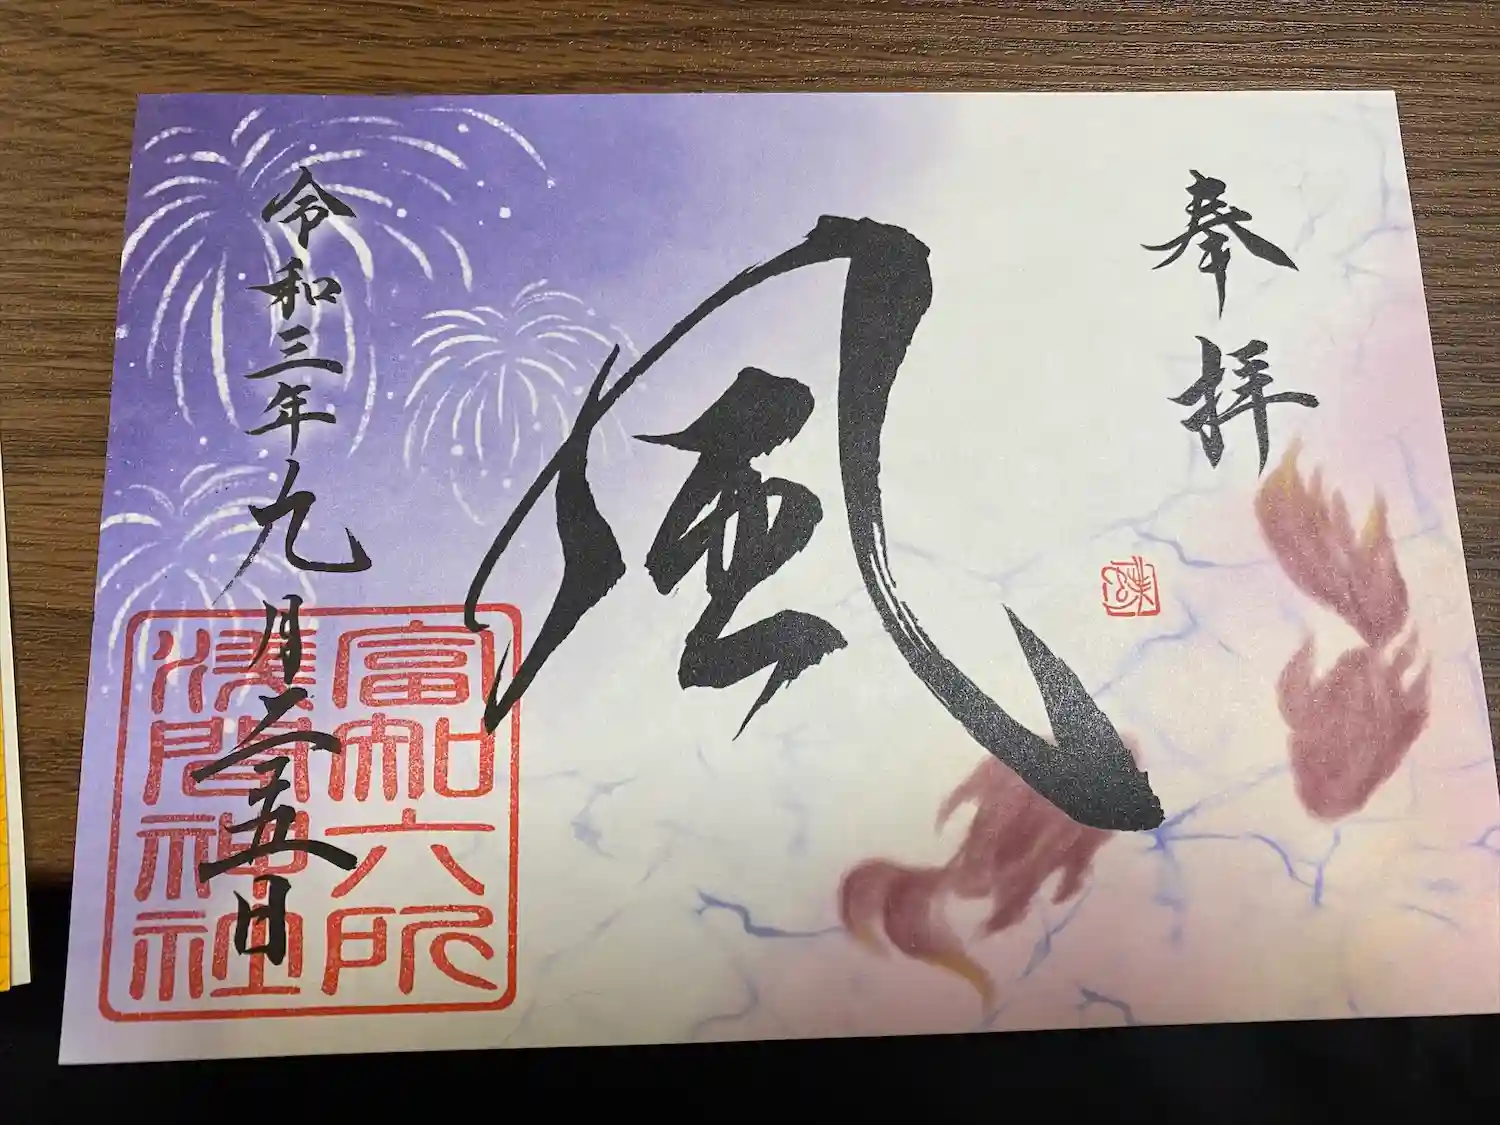 奉拝
風
令和三年九月二十五日
富知六所
淺間神社